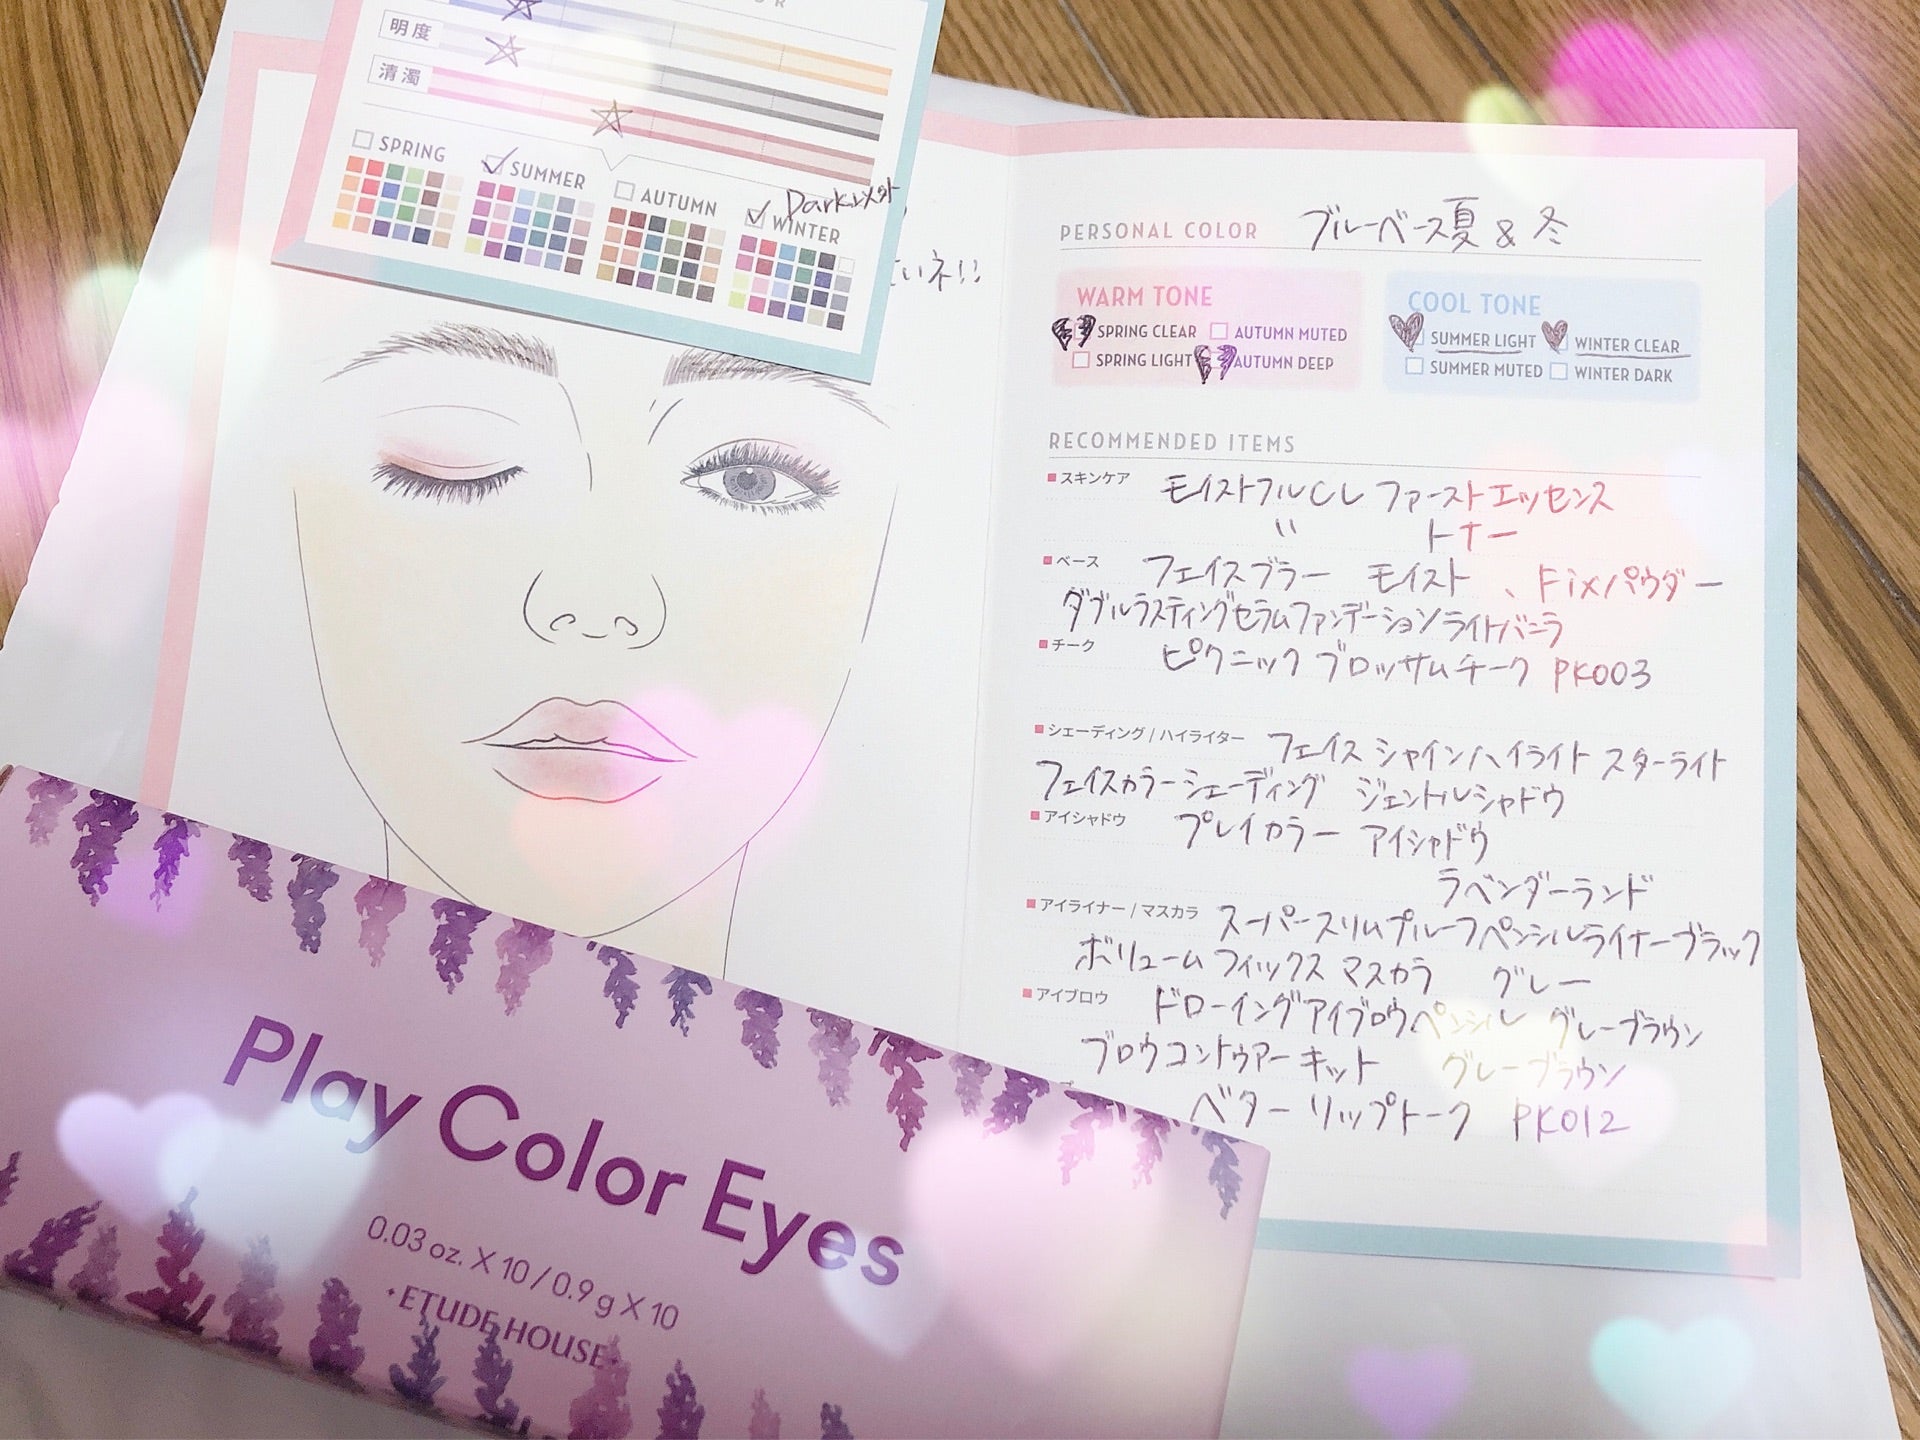 明度
清濁
SPRING
SUMMER
AUTUMN
WINTER
PERSONAL COLOR ブルーベース夏 & 冬
WARM TONE
SPRING CLEAR
AUTUMN MUTED
SPRING LIGHT
AUTUMN DEEP
COOL TONE
SUMMER LIGHT
WINTER CLEAR
SUMMER MUTED
WINTER DARK
RECOMMENDED ITEMS
スキンケア モイストフルCL ファーストエッセンス
〃 トナー
ベース フェイスブラー モイスト、Fixパウダー
ダブルラスティングセラムファンデーションライトバニラ
チーク ピクニック ブロッサムチーク PK003
シェーディング / ハイライター フェイス シャインハイライト スターライト
フェイスカラーシェーディング ジェントルシャドウ
アイシャドウ プレイカラー アイシャドウ
ラベンダーランド
アイライナー / マスカラ スーパースリムプルーフペンシルライナーブラック
ボリューム フィックス マスカラ グレー
アイブロウ ドローイングアイブロウペンシル グレーブラウン
ブロウコントゥアー キット グレーブラウン
ベター リップトーク PK012
Play Color Eyes
0.03 oz. X 10 / 0.9 g X 10
ETUDE HOUSE